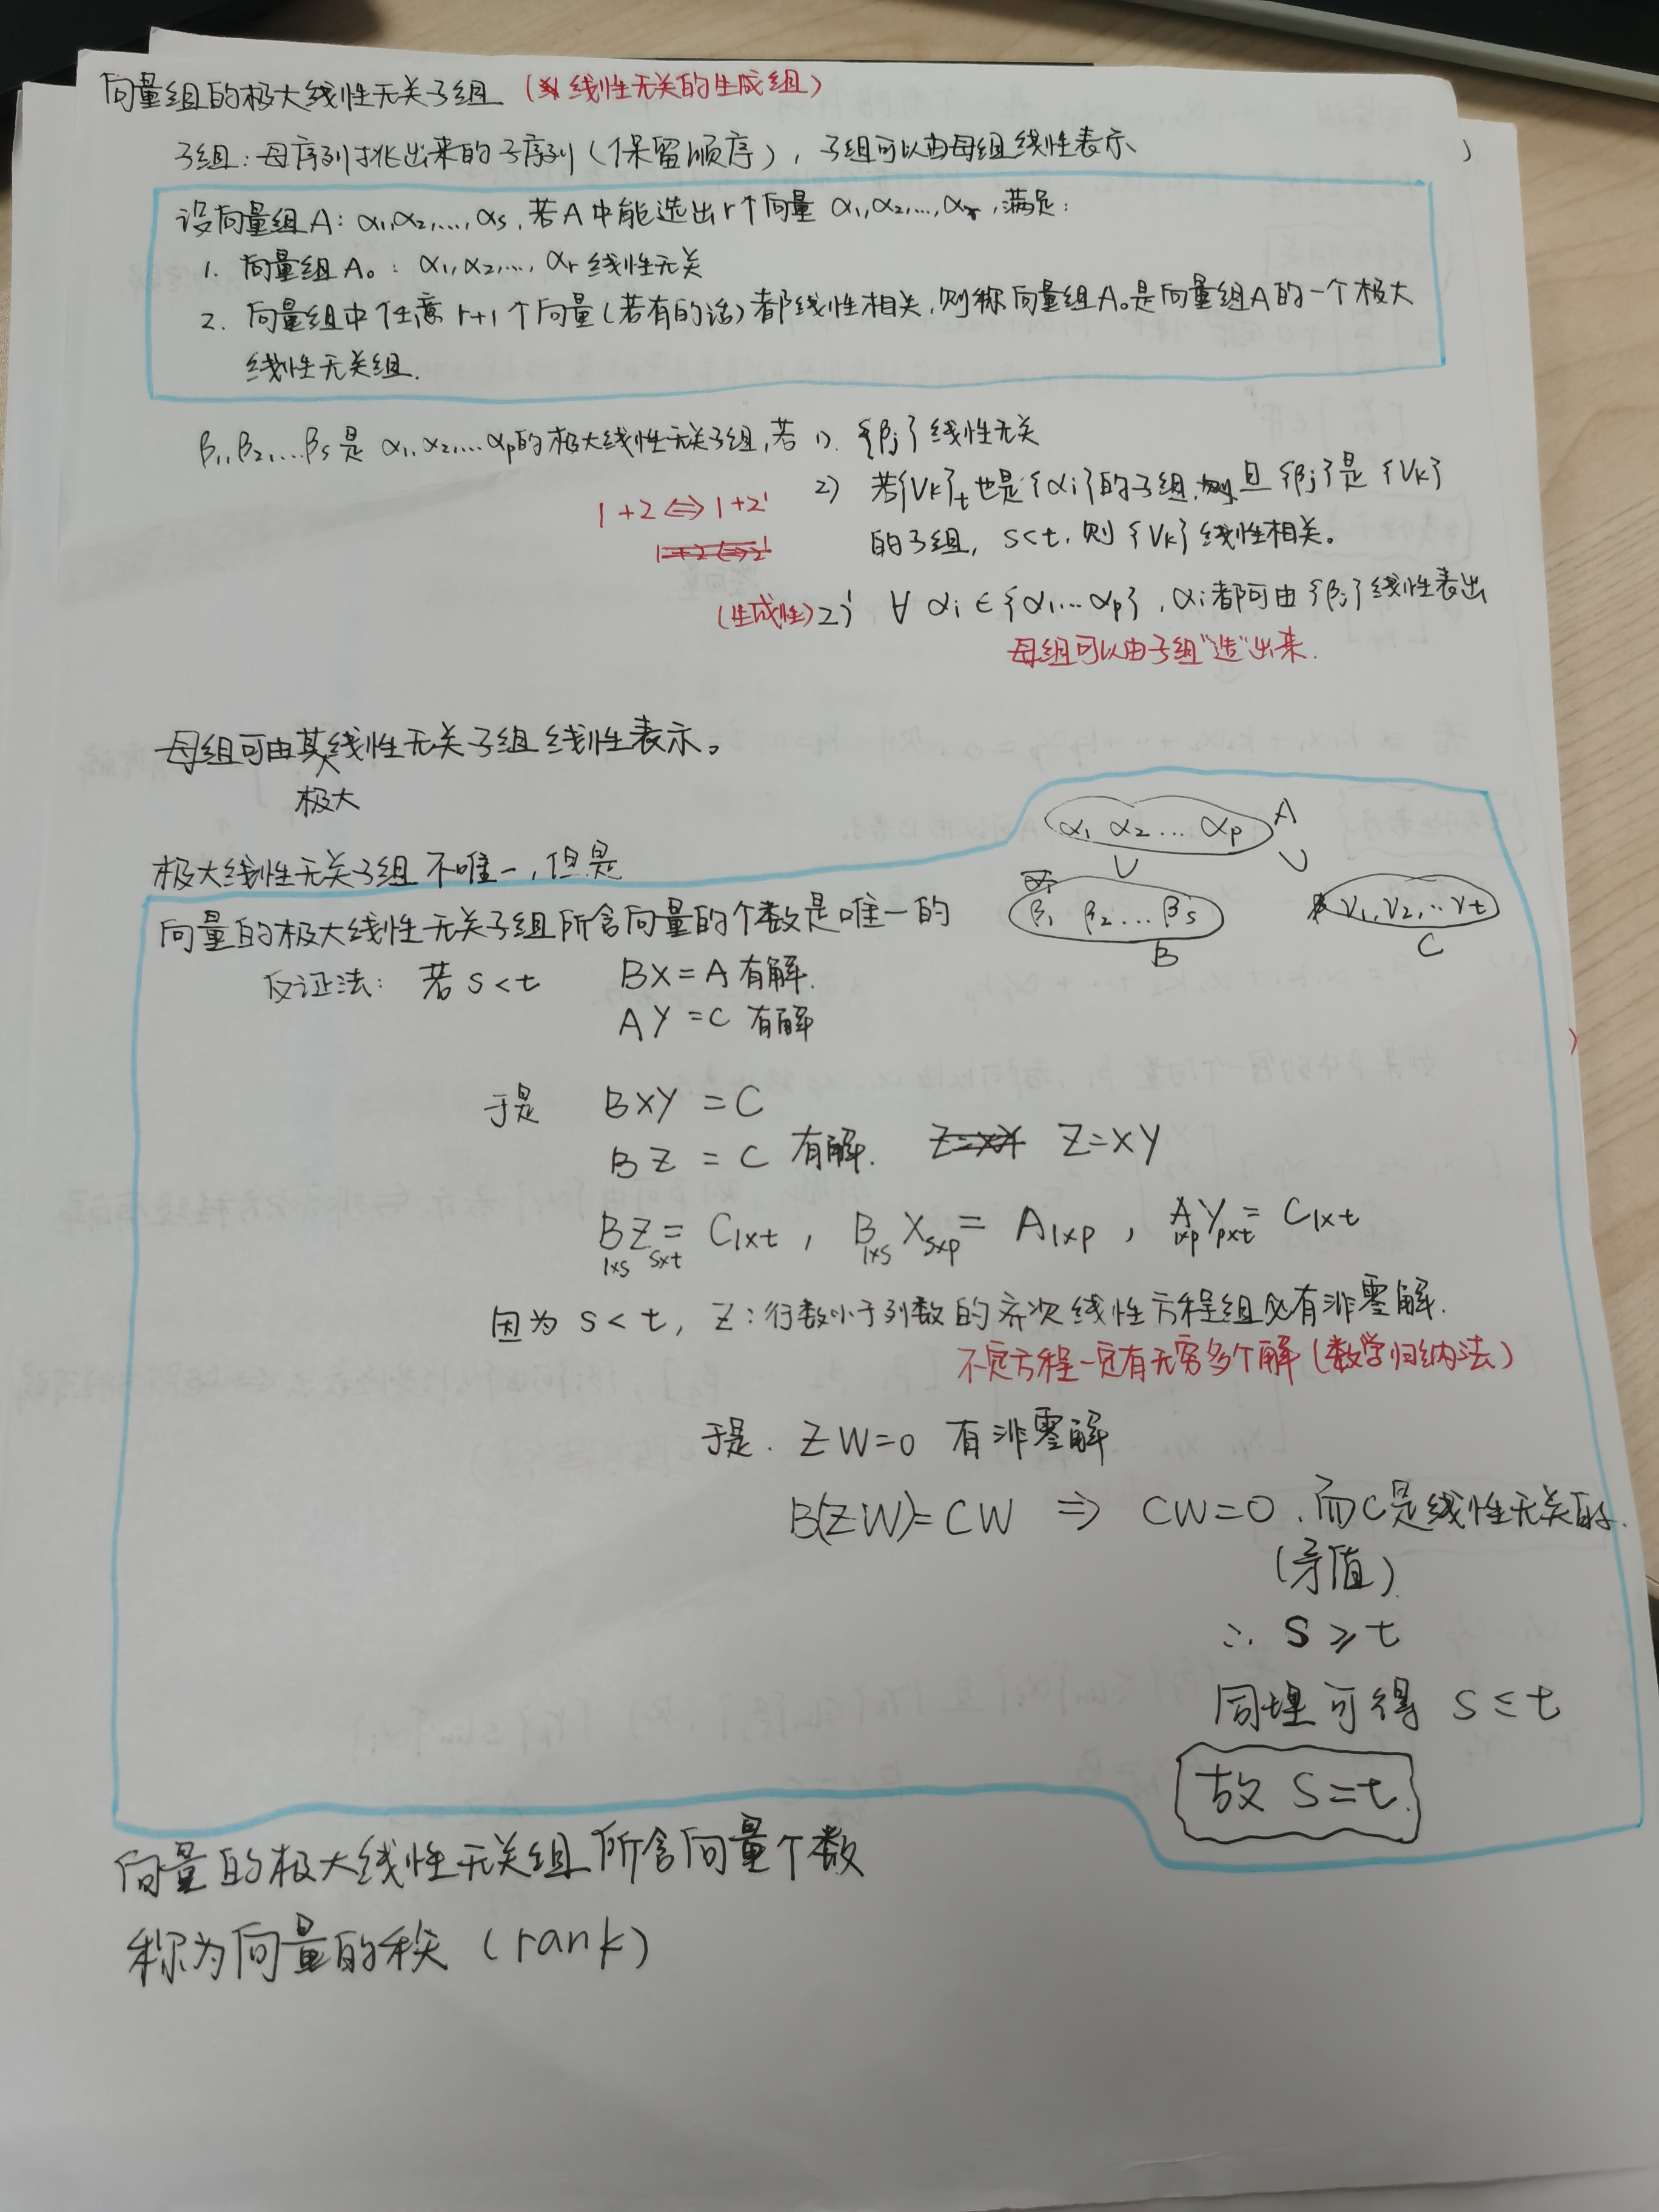 向量组的极大线性无关子组 (线性无关的生成组)
子组：母序列挑出来的子序列(保留顺序)，子组可以由母组线性表示
设向量组A: α1,α2,...,αs,若A中能选出r个向量 α1,α2,...,αr,满足：
1. 向量组A0: α1,α2,...,αr线性无关
2. 向量组中任意r+1个向量(若有的话)都线性相关,则称向量组A0是向量组A的一个极大
线性无关组.
β1,β2,...βs是 α1,α2,...αp的极大线性无关子组,若 1). {βj}线性无关
1+2⇔1+2' 2) 若{Vk}t也是{αi}的子组,且{βj}是{Vk}
1+2⇔2' 的子组, s<t,则{Vk}线性相关。
(生成性)2') ∀ αi∈{α1...αp},αi都可由{βj}线性表出
母组可以由子组"造"出来.
母组可由其线性无关子组线性表示。
极大
α1 α2 ... αp A
U U
极大线性无关子组不唯一,但是
向量的极大线性无关子组所含向量的个数是唯一的
β1 β2...βs B
γ1,γ2,..γt C
反证法: 若s<t BX=A有解.
AY=C有解
于是 BXY=C
BZ=C有解. Z=XY Z=XY
B1×s Zs×t = C1×t , B1×s Xs×p = A1×p , A1×p Yp×t = C1×t
因为 s<t, Z:行数小于列数的齐次线性方程组必有非零解.
不定方程一定有无穷多个解(数学归纳法)
于是. ZW=0 有非零解
B(ZW)=CW ⇒ CW=0.而C是线性无关的.
(矛值)
∴ S≥t
同理可得 S≤t
故 S=t.
向量的极大线性无关组所含向量个数
称为向量的秩(rank)